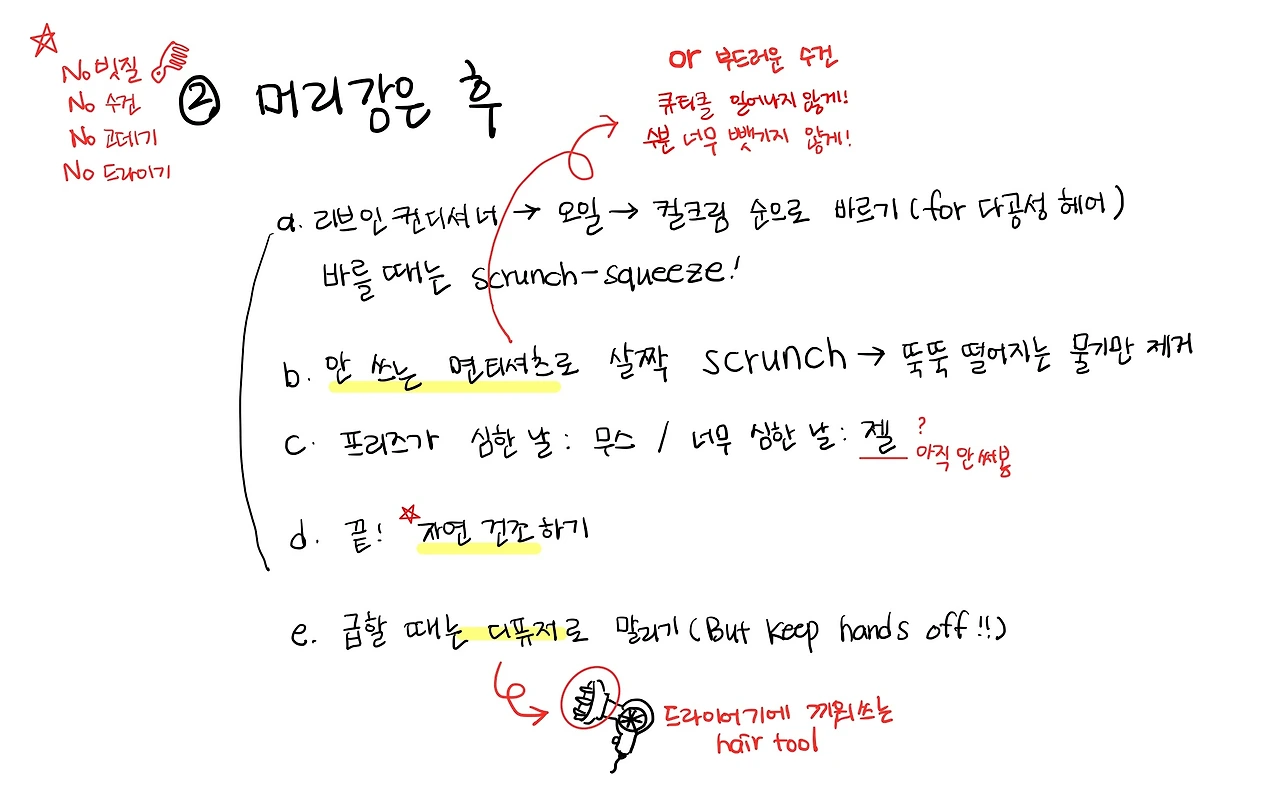 No 빗질
No 수건
No 고데기
No 드라이기
② 머리감은 후
or 부드러운 수건
큐티클 일어나지 않게!
수분 너무 뺏기지 않게!
a. 리브인 컨디셔너 → 오일 → 컬크림 순으로 바르기 (for 다공성 헤어)
바를 때는 scrunch-squeeze!
b. 안 쓰는 면티셔츠로 살짝 scrunch → 뚝뚝 떨어지는 물기만 제거
c. 프리즈가 심한 날 : 무스 / 너무 심한 날 : 젤
?
아직 안써봄
d. 끝! 자연 건조하기
e. 급할 때는 디퓨저로 말리기 (But keep hands off!!)
드라이어기에 끼워쓰는
hair tool